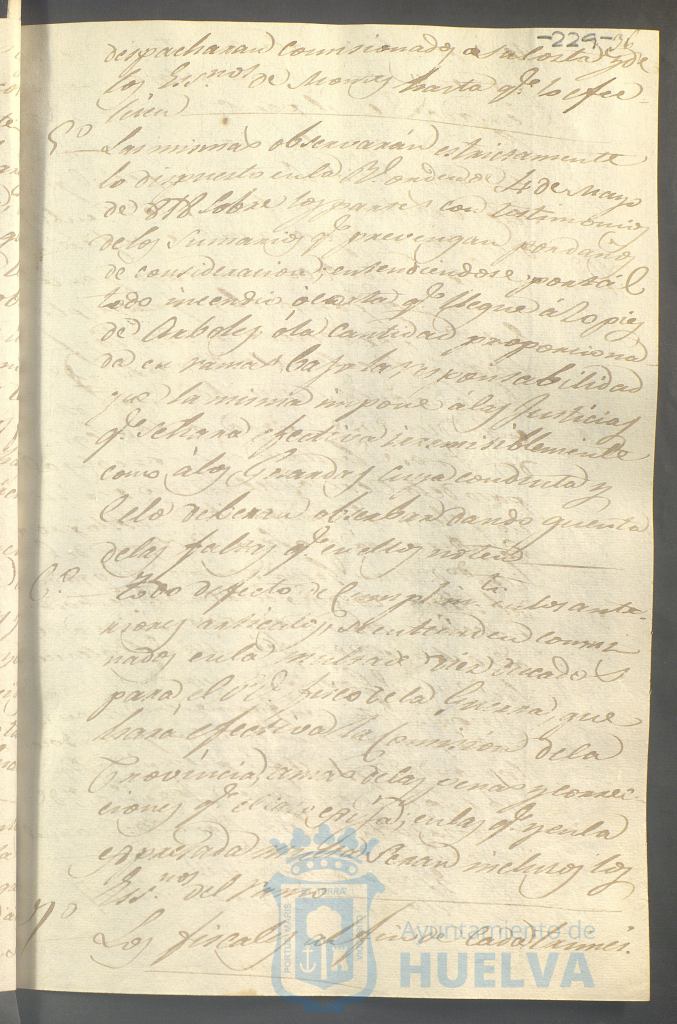 -229-
36
despacharan comisionados a su costa y de
los Essnos de Montes hasta qe lo efec-
tuen
5º Las mismas observarán estrictamente
lo dispuesto en la Rl orden de 4 de Mayo
de 818 sobre los partes con testimonios
de los Sumarios qe prevengan por daños
de consideracion, entendiendose por tál
todo incendio ó corta qe llegue á 20 pies
de Arboles ó la cantidad proporciona-
da en ramas bajo la responsabilidad
que la misma impone á las Justicias
qe se hara efectiva irremisiblemente
como á los Guardas cuya conducta y
Celo deberan observar dando quenta
de las faltas qe en ellos noten
6º Todo defecto de Cumplimto en los ante-
riores articulos, se entiende con mi
nados en la multa de diez ducados
para el Rl fisco de la Guerra, que
hará efectiva la Comision de la
Provincia, a mas de las penas y correc-
ciones qe el caso exija, en las qe y en la
expresada multa seran inclusos los
Essnos del Ramo
7º Los fiscales al fin de cada trimes-
PORTUS MARIS
ET TERRÆ
CUSTODIA
Ayuntamiento de
HUELVA